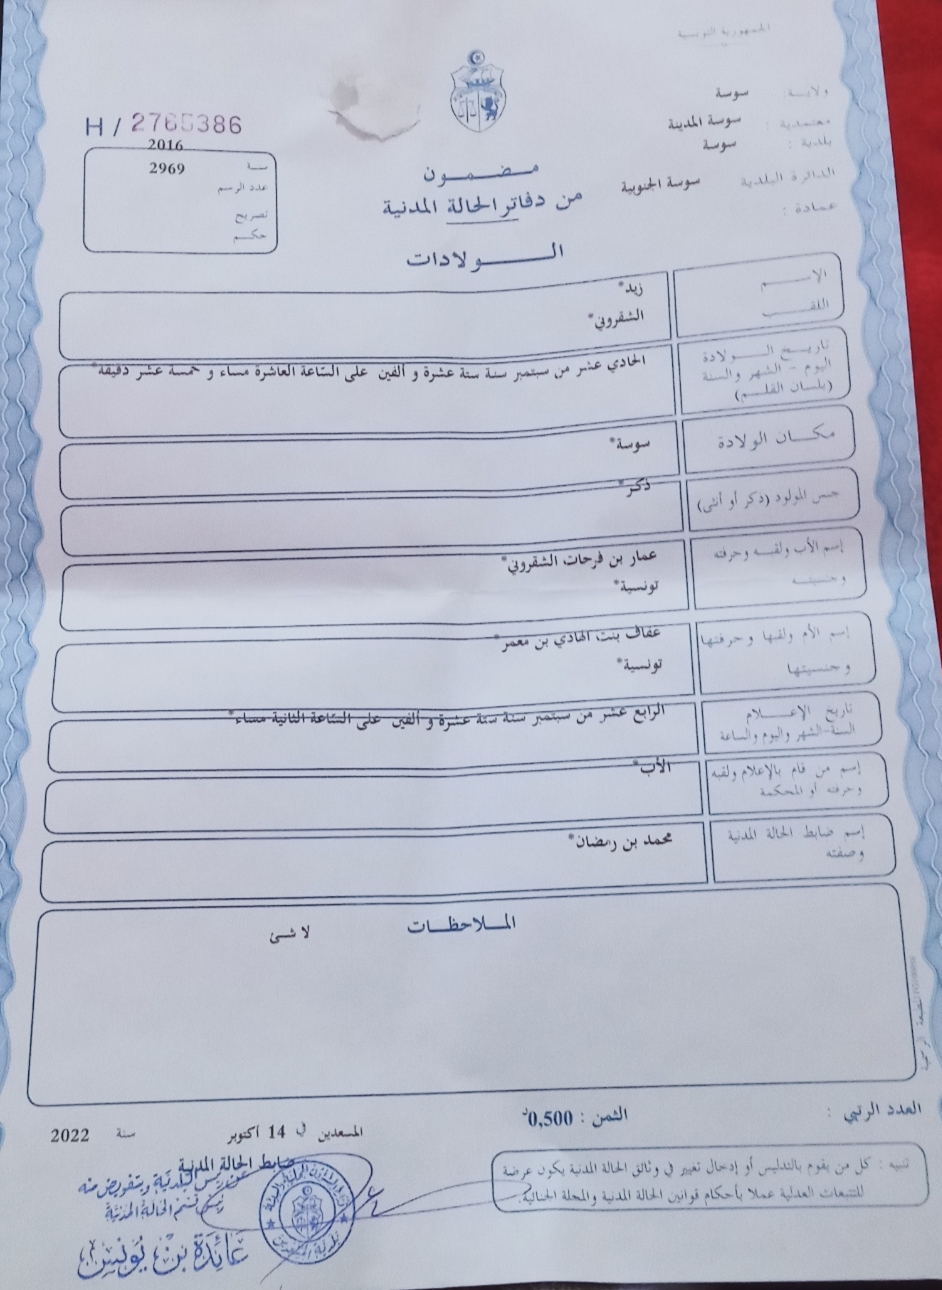 الجمهورية التونسية
ولاية: سوسة
معتمدية : سوسة المدينة
بلدية : سوسة
الدائرة البلدية سوسة الجنوبية
عمادة :
H / 2765386
سنة 2016
عدد الرسم 2969
تصريح
حكم
مضمون
من دفاتر الحالة المدنية
الولادات
الاسم زيد*
اللقب الشقروني*
تاريخ الولادة الحادي عشر من سبتمبر سنة ستة عشرة و ألفين على الساعة العاشرة مساء و خمسة عشر دقيقة*
اليوم - الشهر والسنة
(بلسان القلم)
مكان الولادة سوسة*
جنس المولود (ذكر أو أنثى) ذكر*
إسم الأب ولقبه وحرفته عمار بن فرحات الشقروني*
وجنسيته تونسية*
إسم الأم ولقبها وحرفتها عفاف بنت الهادي بن معمر*
وجنسيتها تونسية*
تاريخ الإعلام الرابع عشر من سبتمبر سنة ستة عشرة و ألفين على الساعة الثانية مساء*
السنة-الشهر واليوم والساعة
إسم من قام بالإعلام ولقبه الأب*
وحرفته أو المحكمة
إسم ضابط الحالة المدنية محمد بن رمضان*
وصفته
الملاحظات
لا شئ
العدد الرتبي : الثمن : 0,500د
المسعدين في 14 أكتوبر سنة 2022
ضابط الحالة المدنية
عن رئيس البلدية وبتفويض منه
رئيس قسم الحالة المدنية
عائدة بن يونس
تنبيه : كل من يقوم بالتدليس أو إدخال تغيير في وثائق الحالة المدنية يكون عرضة
للتتبعات العدلية عملا بأحكام قوانين الحالة المدنية والمجلة الجنائية.